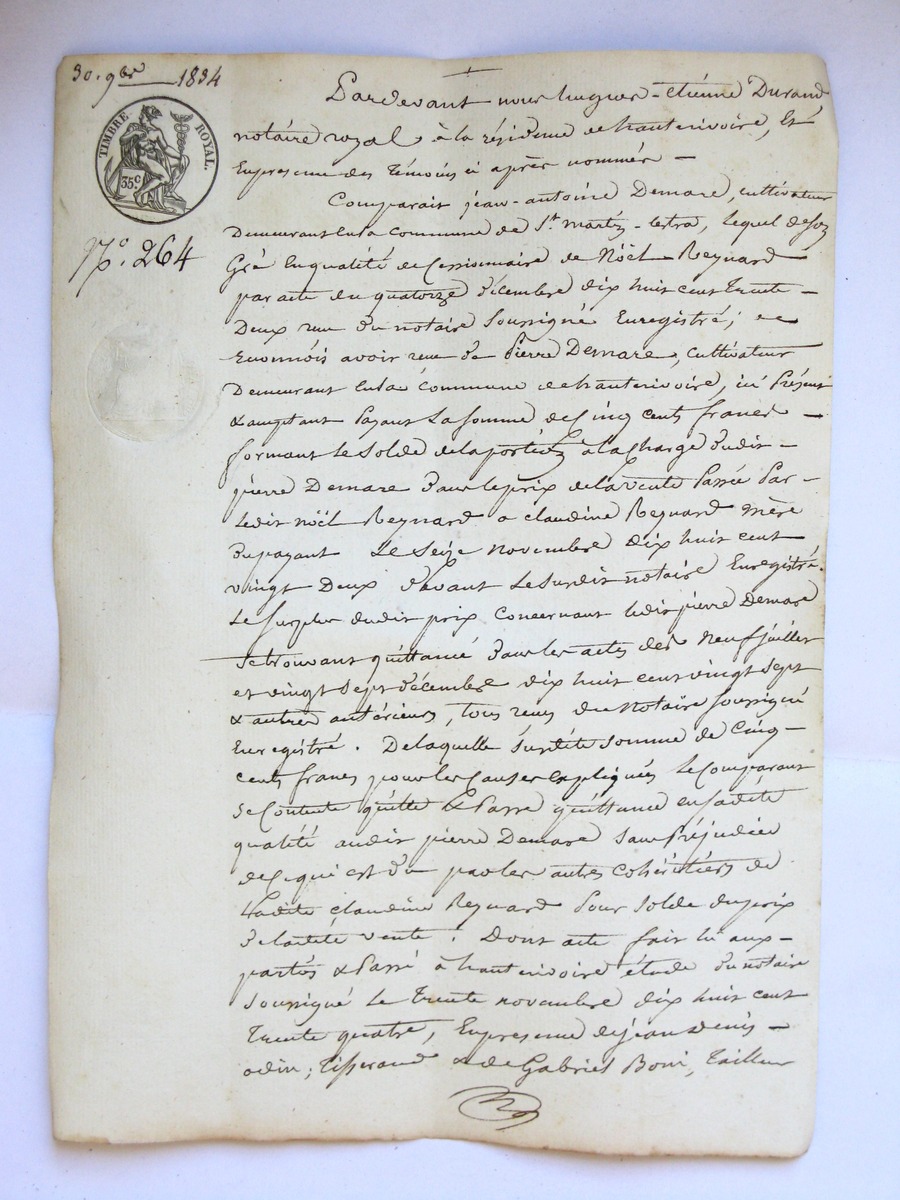 30. 9bre 1834
TIMBRE ROYAL.
35 c
N°. 264
Pardevant nous hugues-etiénne Durand
notaire royal à la résidence de hauterivoire, Et
Enpresence des témoins ci après nommés —
Comparait jean-antoine Demare, cultivateur
Demeurant enla commune de St. martin-lestra, lequel deson
Gré Enqualité de Cessionnaire de Nöel Reynard
par acte du quatorze décembre dix huit cent trente —
Deux reçu du notaire soussigné Enregistré; a
reconnu avoir reçu de Pierre Demare, cultivateur
Demeurant enla commune de hauterivoire, ici présent
& acceptant Payant La somme de Cinq cents francs —
formant le solde de la portion à la Charge dudit —
pierre Demare dans le prix de la vente Passée Par —
Ledit nöel Reynard a claudine Reynard mère
du payant Le seize novembre dix huit cent
vingt Deux devant le susdit notaire Enregistré.
Le surplus dudit prix concernant ledit pierre Demare
se trouvant quittancé dans les actes des neuf juillet
et vingt sept décembre dix huit cent vingt sept
& autres antérieurs, tous reçus du notaire soussigné
Enregistré. De laquelle susdite somme de cinq-
cents francs pour les causes expliquées le comparant
se Contente quitte & Passe quittance ensadite
qualité audit pierre Demare sans Préjudice
de ce qui est du par les autres cohéritiers de
Ladite claudine Reynard Pour solde du prix
de ladite vente. Dont acte fait lu aux-
parties & Passé à hauterivoire étude du notaire
soussigné le trente novembre dix huit cent
trente quatre, Enpresence de jean denis —
odin, tisserand & de Gabriel Boni, tailleur